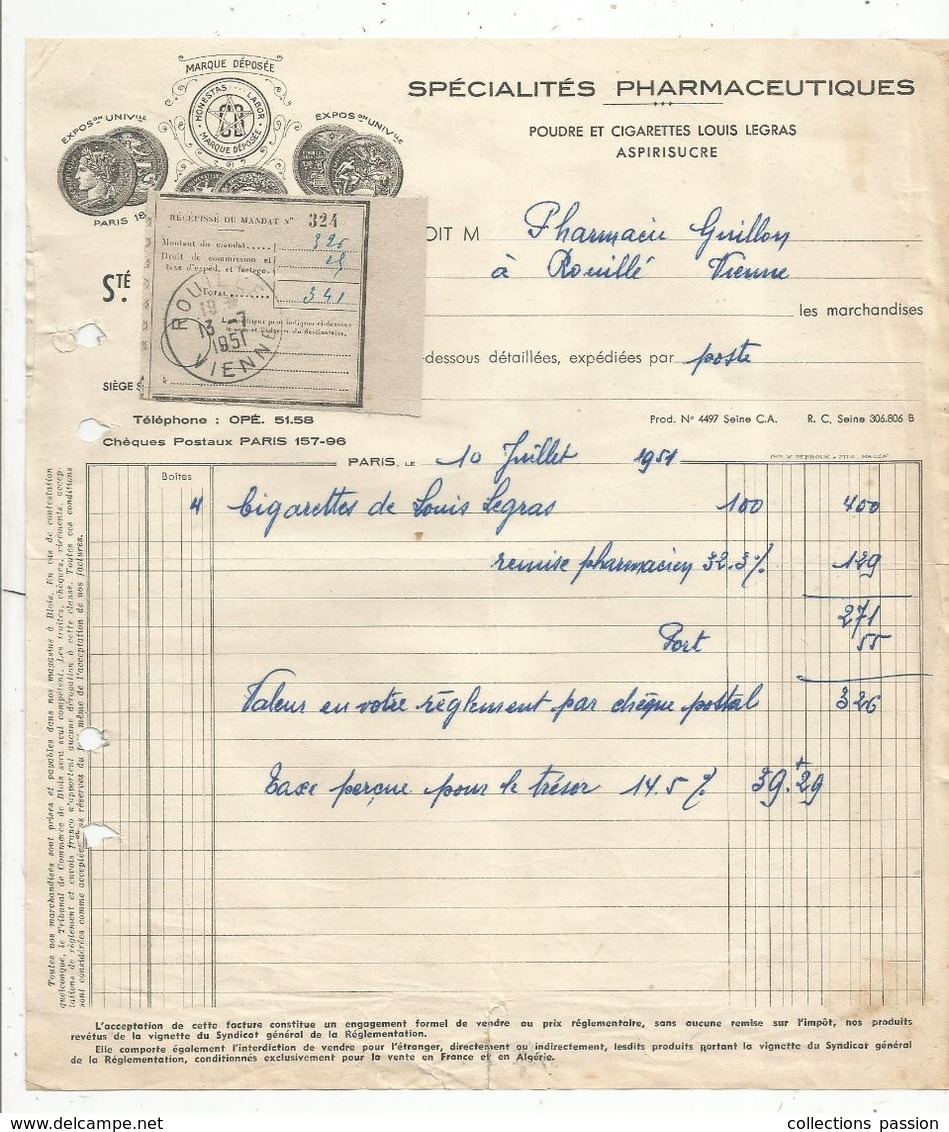 MARQUE DÉPOSÉE
HONESTAS LABOR
MARQUE DÉPOSÉE
EXPOS.on UNIV.lle
EXPOS.on UNIV.lle
PARIS 18
SPÉCIALITÉS PHARMACEUTIQUES
POUDRE ET CIGARETTES LOUIS LEGRAS
ASPIRISUCRE
RÉCÉPISSÉ DU MANDAT N° 324
Montant du mandat 326
Droit de commission et
taxe d'expéd. et factage. 15
TOTAL 341
ROUILLÉ
13 -7
1951
VIENNE
OIT M Pharmacie Guillon
à Rouillé Vienne
STÉ
les marchandises
-dessous détaillées, expédiées par poste
SIÈGE S
Téléphone : OPÉ. 51.58
Prod. N° 4497 Seine C.A. R. C. Seine 306.806 B
Chèques Postaux PARIS 157-96
PARIS, LE 10 Juillet 1951
Boîtes
4 Cigarettes de Louis Legras 100 400
remise pharmacien 32.3% 129
271
Port 55
Valeur en votre règlement par chèque postal 326
Taxe perçue pour le trésor 14.5% 39.29
Toutes nos marchandises sont prises et payables dans nos magasins à Blois. En cas de contestation
quelconque, le Tribunal de Commerce de Blois sera seul compétent. Les traites, chèques, virements, accep-
tations de règlement et envois franco n'apportent aucune dérogation à cette clause. Toutes ces conditions
sont considérées comme acceptées sans réserves du fait même de l'acceptation de nos factures.
L'acceptation de cette facture constitue un engagement formel de vendre au prix réglementaire, sans aucune remise sur l'impôt, nos produits
revêtus de la vignette du Syndicat général de la Réglementation.
Elle comporte également l'interdiction de vendre pour l'étranger, directement ou indirectement, lesdits produits portant la vignette du Syndicat général
de la Réglementation, conditionnés exclusivement pour la vente en France et en Algérie.
collections passion